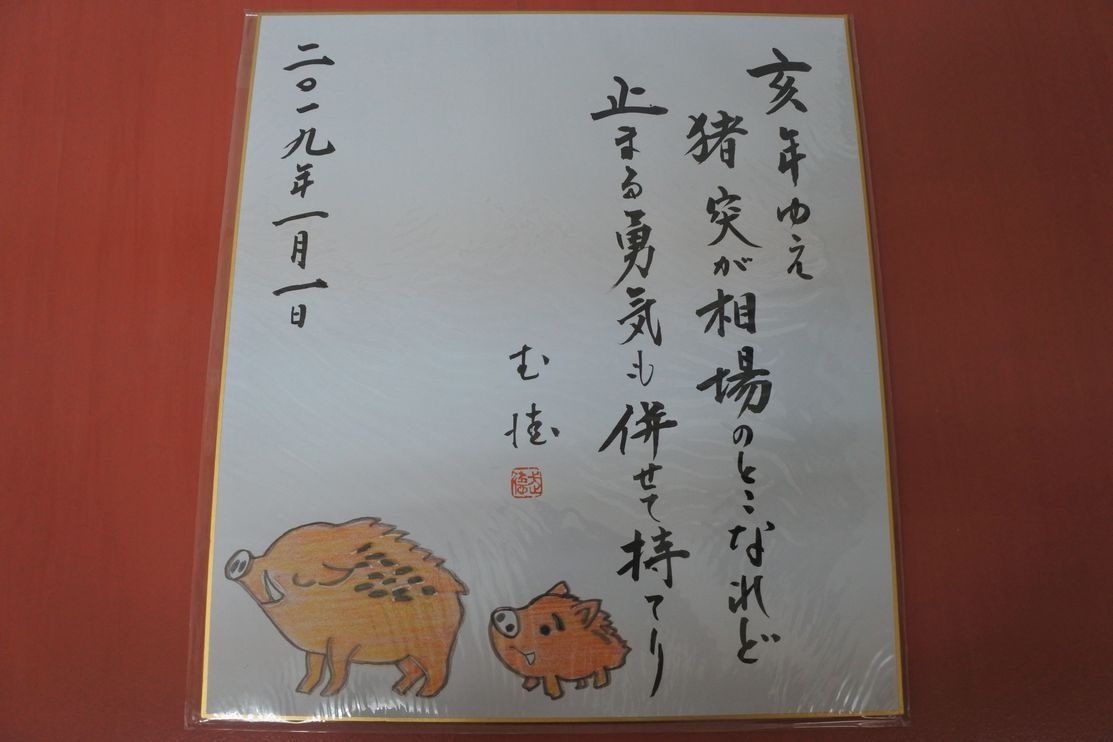 亥年ゆえ
猪突が相場のとこなれど
止まる勇気も併せて持てり
二〇一九年一月一日